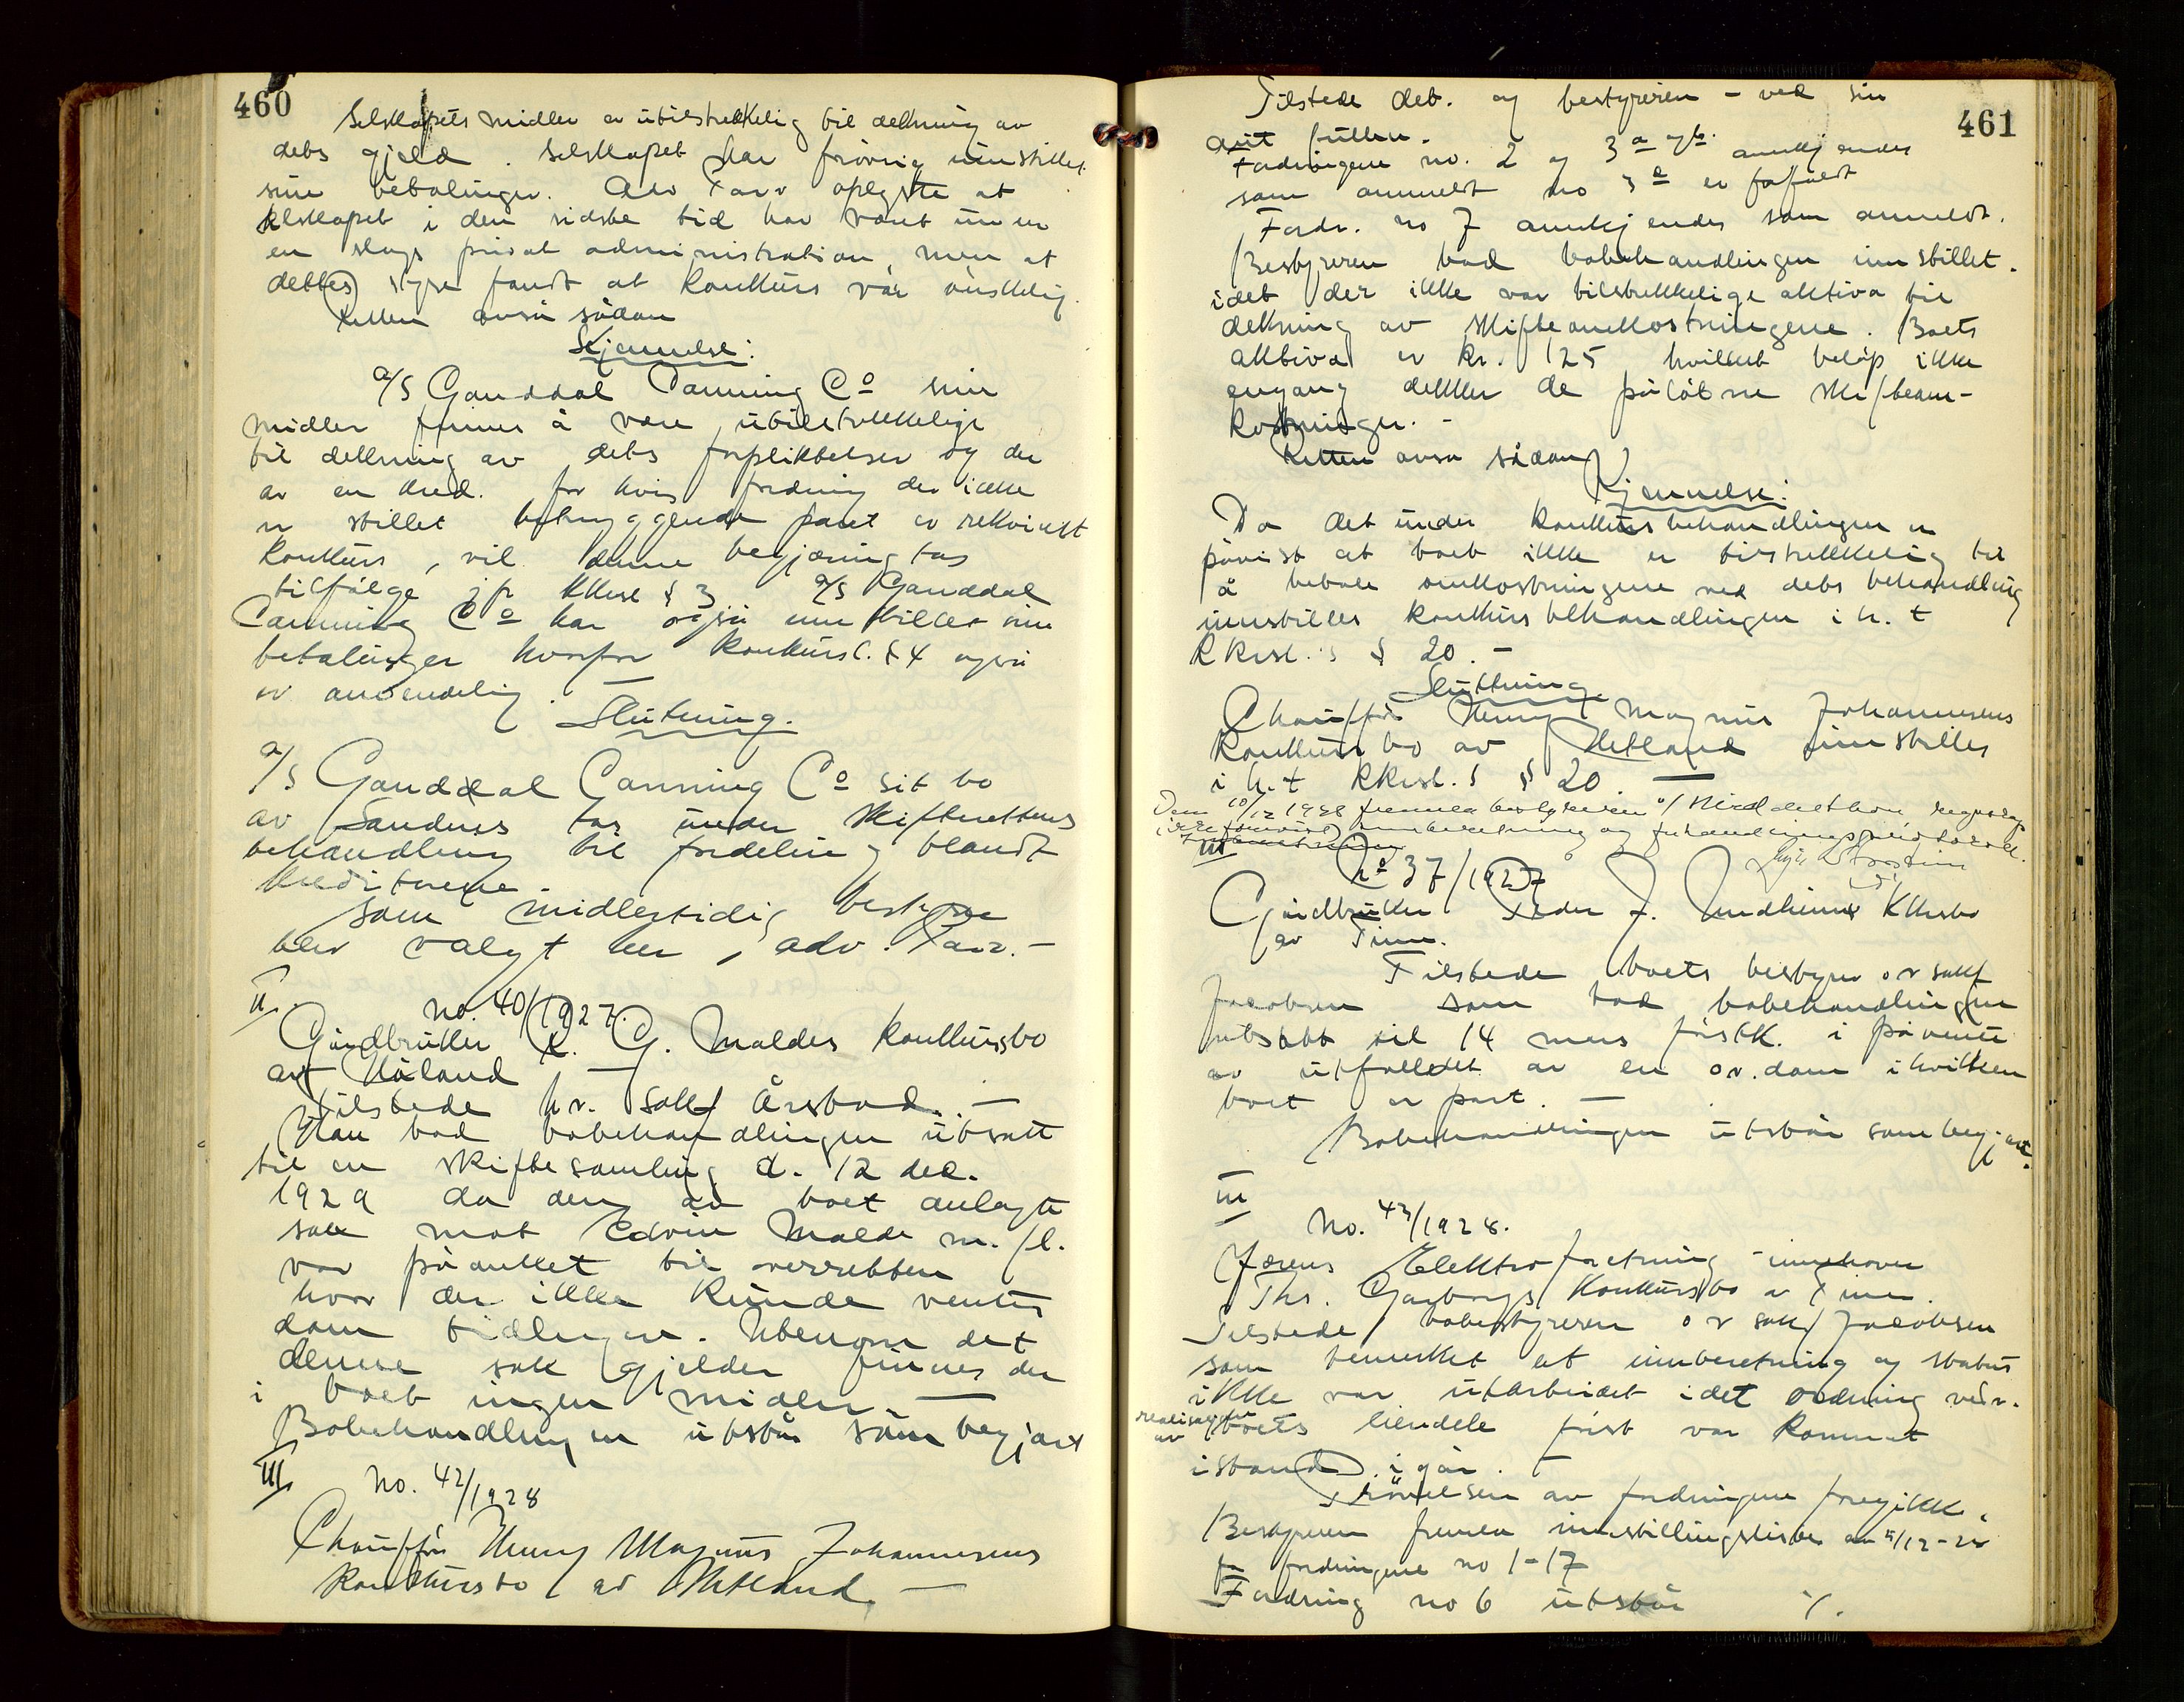 460
Selskapets midler er utilstrekkelig til dekning av
dets gjeld. Selskapet har forøvrig innstillet
sine betalinger. Adv Tarr oplyste at
selskapet i den sidste tid har været under
en slags privat administration, men at
dettes styre fandt at konkurs var ønskelig.
Retten avsa sådan
Kjennelse:
A/S Ganddal Canning Co sine
midler finnes å være utilstrekkelige
til dekning av dets forpliktelser og da
av en kred. for hvis fordring der ikke
er stillet betryggende pant er rekvirert
konkurs, vil denne begjæring tas
tilfølge jfr Kkrsl § 3 A/S Ganddal
Canning Co har også innstillet sine
betalinger hvorfor konkursl. § 4 også
er anvendelig. —
Slutning.
A/S Ganddal Canning Co sit bo
av Sandnes tas under skifterettens
behandling til fordeling blandt
kreditorene.
Som midlertidig bestyrer
blev valgt hr, adv. Tarr. —
II.
no. 40/1927.
Gårdbruker R. G. Maldes konkursbo
av Håland —
Tilstede hr. sakf Årsbad. —
Han bad bobehandlingen utsatt
til en skiftesamling d. 12 dec.
1929 da den av boet anlagte
sak mot Edvin Malde m. fl.
var påanket til overretten
hvor der ikke kunde ventes
dom tidligere. Utenom det
denne sak gjelder finnes der
i boet ingen midler. —
Bobehandlingen utstår som begjært
III.
no. 42/1928
Chauffør Henry Magnus Johannesens
konkursbo av Hetland. —
461
Tilstede deb. og bestyreren – ved sin
fullm.
Fordringene no. 2 og 3 a og b. anerkjendes
som anmeldt no 3 a er forfaldt
Fordr. no 7 anerkjendes som anmeldt.
Bestyreren bad bobehandlingen innstillet.
idet der ikke var tilstrekkelige aktiva til
dekning av skifteomkostningene. Boets
aktiva er kr. 125 hvilket beløp ikke
engang dekker de påløbne skifteom-
kostninger. –
Retten avsa sådan
Kjennelse:
Da det under konkursbehandlingen er
påvist at boet ikke er tilstrekkelig til
å betale omkostningene ved dets behandling
innstilles konkursbehandlingen i h. t
Kkrsl. s § 20. –
Slutning
Chauffør Henry Magnus Johannesens
konkursbo av Hetland innstilles
i h. t Kkrsl. s § 20. —
Den 10/12 1928 fremla bestyreren regnskap
innberetning og forhandlingsprotokoll.
III
no 37/1927
Gårdbruker Peder J. Undheims Kkrsbo
av Time.
Tilstede boets bestyrer or sakf
Jacobsen som bad bobehandlingen
utsatt til 14 mars førstk. i påvente
av utfalldet av en or. dom i hvilken
boet er part. —
Bobehandlingen utstår som begjært.
III
No. 43/1928.
Jærens Elektroforretning – innehaver
Ths. Garborgs Konkursbo av Time.
Tilstede bobestyreren or sakf Jacobsen
som bemerket at innberetning og status
ikke var utarbeidet idet ordning vedr.
realisasjon av boets eiendele først var kommet
istand igår. –
Prøvelsen av fordringene foregikk.
Bestyreren fremla innstillingsliste av 5/12-28
for fordringene no 1–17
Fordring no 6 utstår ./.